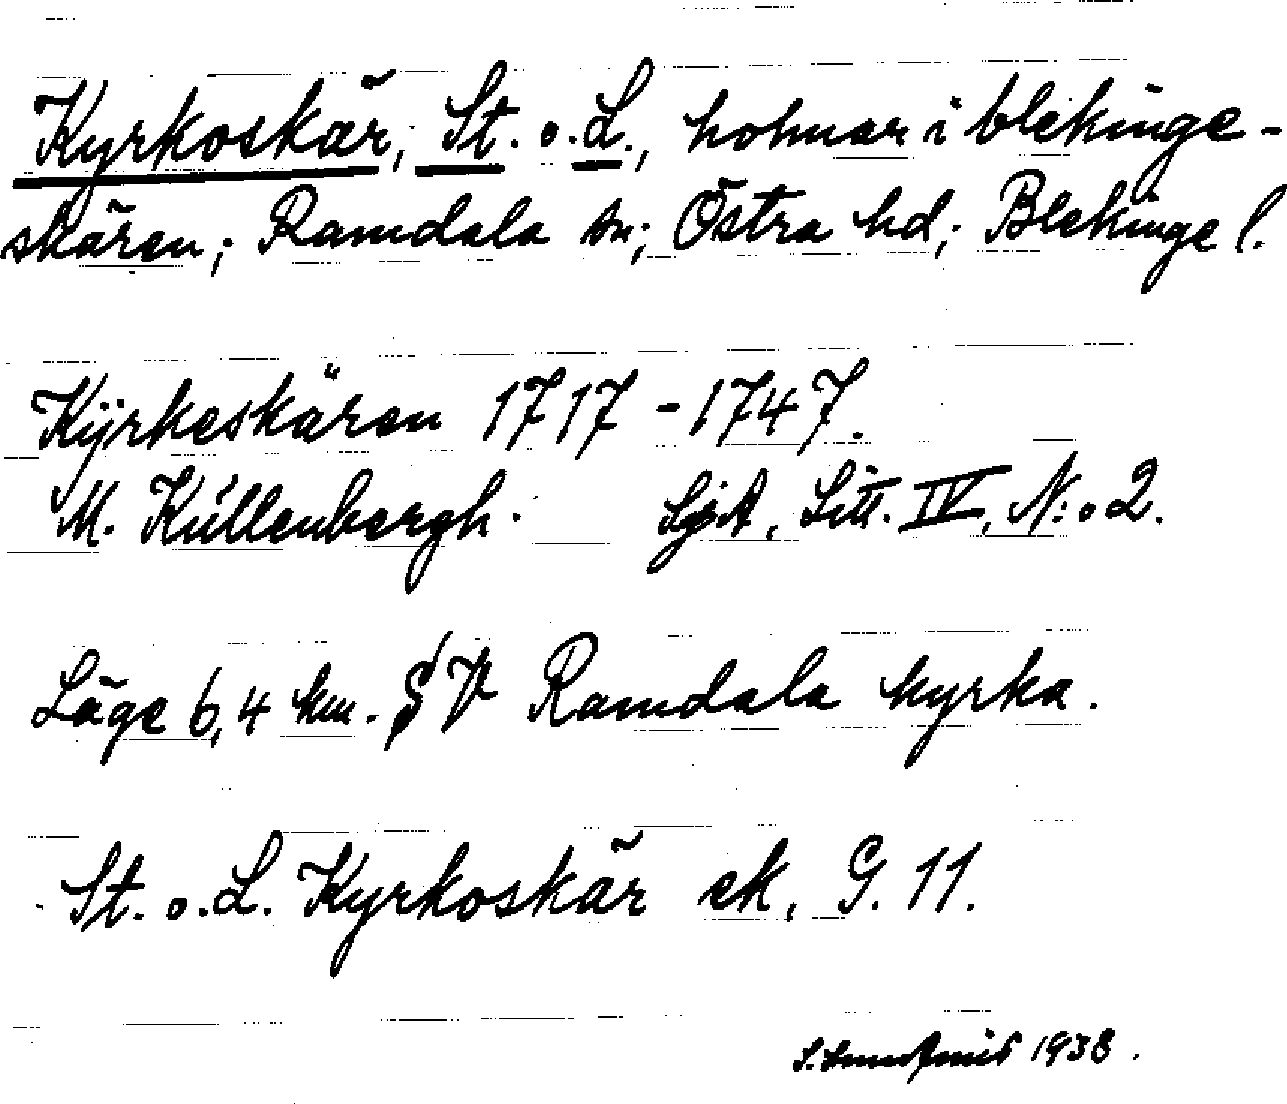 Kyrkoskär, St. o. L., holmar i blekinge-
skären; Ramdala sn; Östra hd; Blekinge l.
Kÿrkeskären 1717-1747.
M. Kúllenbergh. SjA, Litt. IV, N:o 2.
Läge 6,4 km. SV Ramdala kyrka.
St. o. L. Kyrkoskär ek, G. 11.
1938.